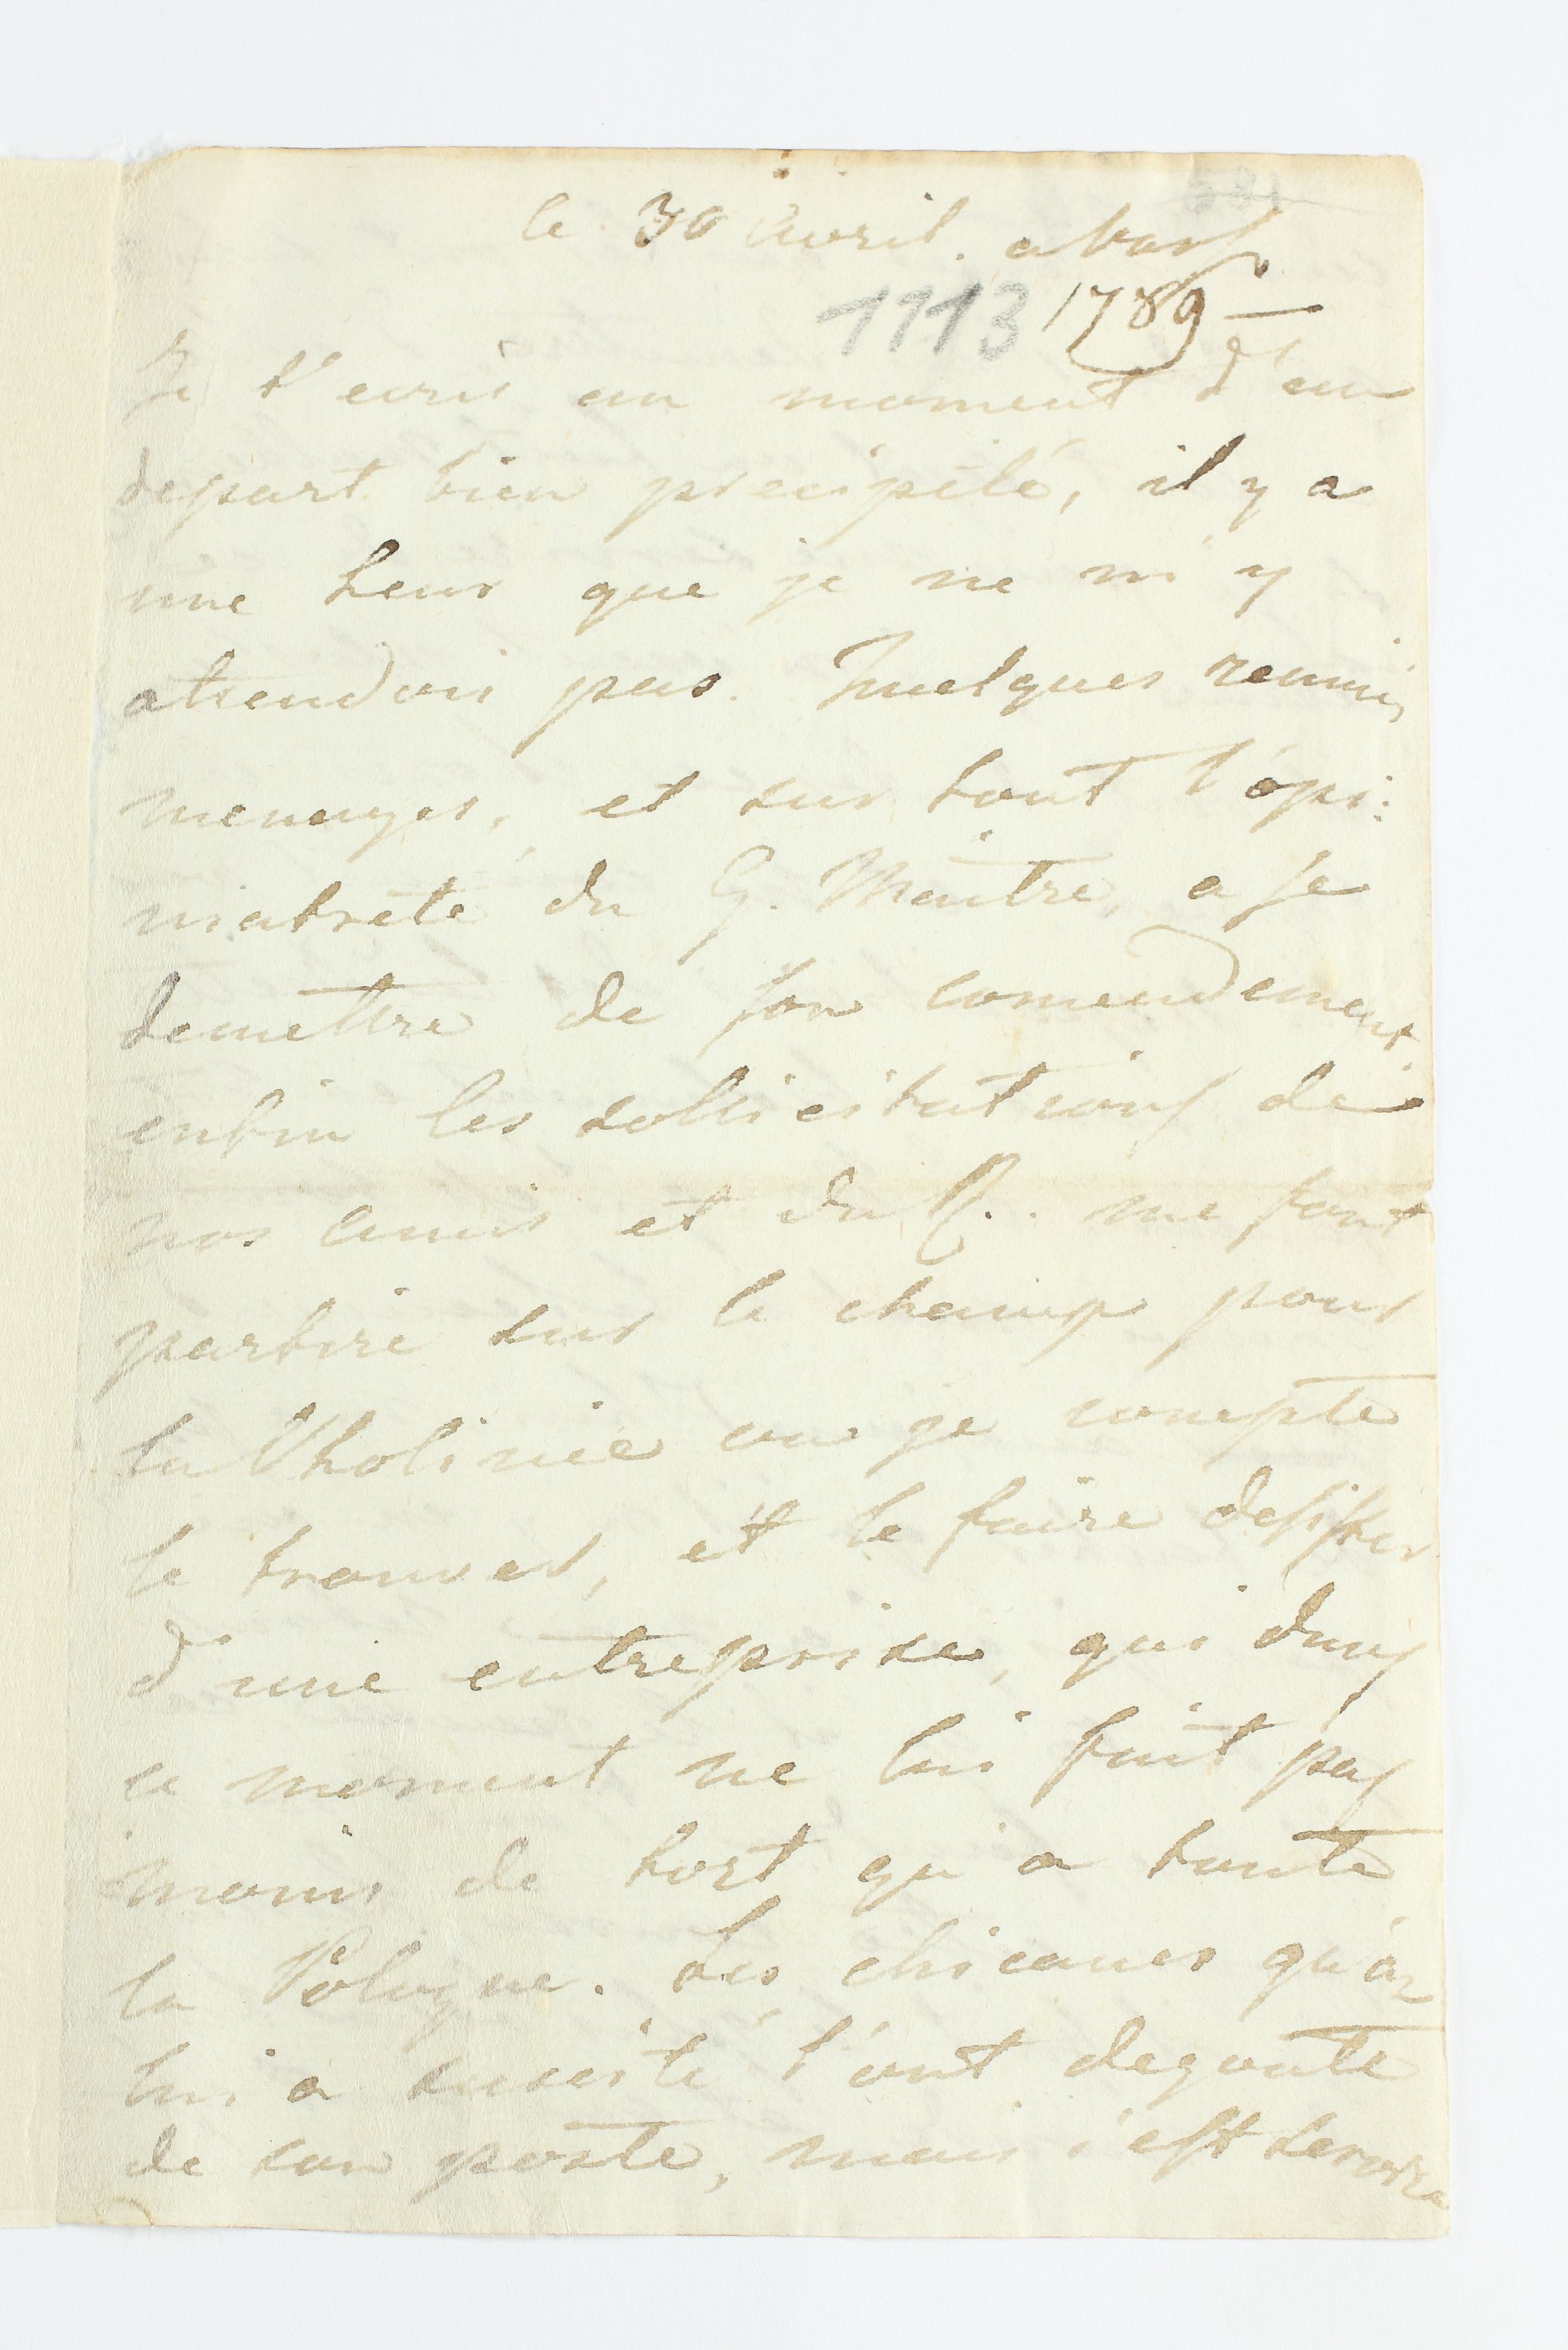 le 30 Avril. a Vars
1113 1789 —
Je t'ecris au moment d'un
depart bien precipité, il y a
une heur que je ne m'y
attendois pas. Quelques remui
menages, et sur tout l'opi:
niatreté du G. Maître, a se
demettre de son comendement.
enfin les sollicitations de
nos amis et du R.. me font
partire sur le champ pour
la Vholinie ou je compte
le trouver, et le faire desister
d'une entreprise, qui dans
ce moment ne lui fait pas
moins de tort qu'a toute
la Pologne. Les chicanes qu'on
lui a suscité l'ont degouté
de son poste, mais c'est servire